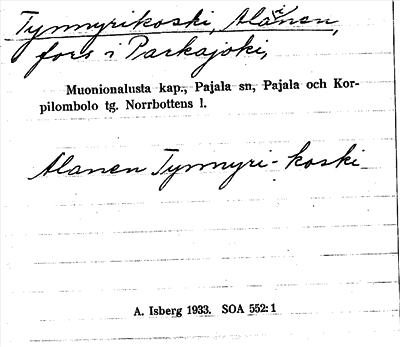 Tynnyrikoski, Alanen,
fors i Parkajoki,
Muonionalusta kap., Pajala sn, Pajala och Kor-
pilombolo tg. Norrbottens l.
Alanen Tynnyri-koski
A. Isberg 1933. SOA 552:1